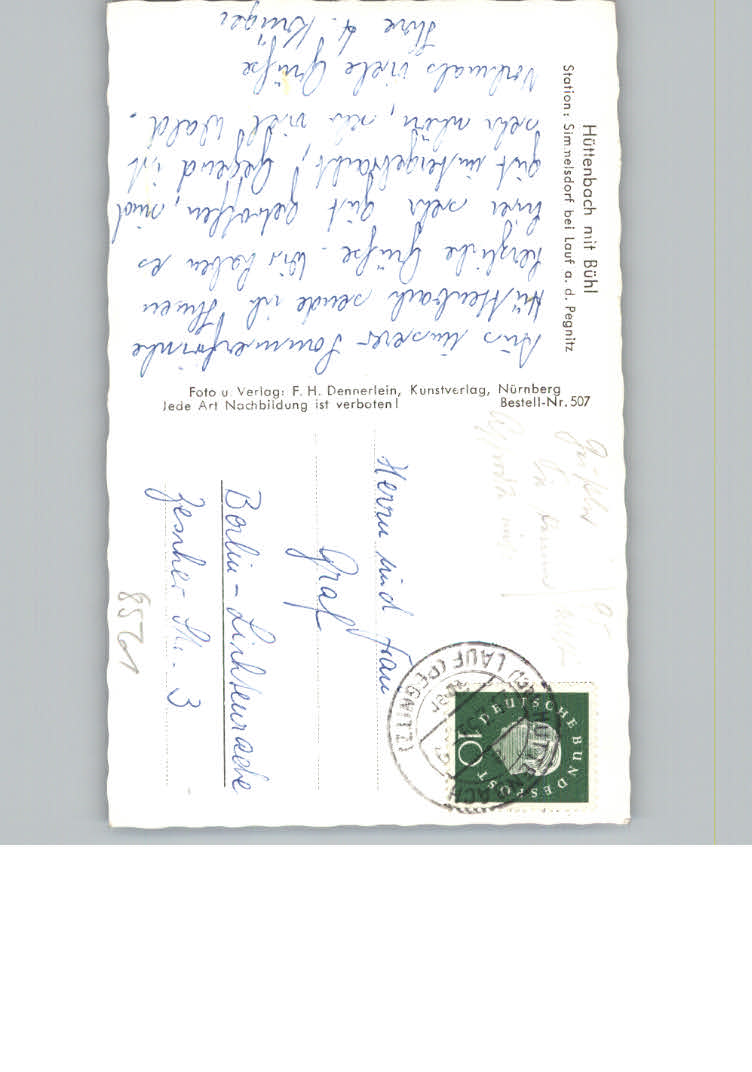 Hüttenbach mit Bühl
Station: Simmelsdorf bei Lauf a. d. Pegnitz
Aus unserer Sommerfrische
Hüttenbach sende ich Ihnen
herzliche Grüße. Wir haben es
hier sehr gut getroffen, sind
gut untergebracht, Gegend ist
sehr schön, sehr viel Wald.
Nochmals viele Grüße
Ihre
Krüger
Foto u. Verlag: F. H. Dennerlein, Kunstverlag, Nürnberg
Jede Art Nachbildung ist verboten! Bestell-Nr. 507
Herrn und Frau
Graf
Berlin-Lichtenrade
Str. 3
DEUTSCHE BUNDESPOST
10
HÜTTENBACH
LAUF (PEGNITZ)
8561